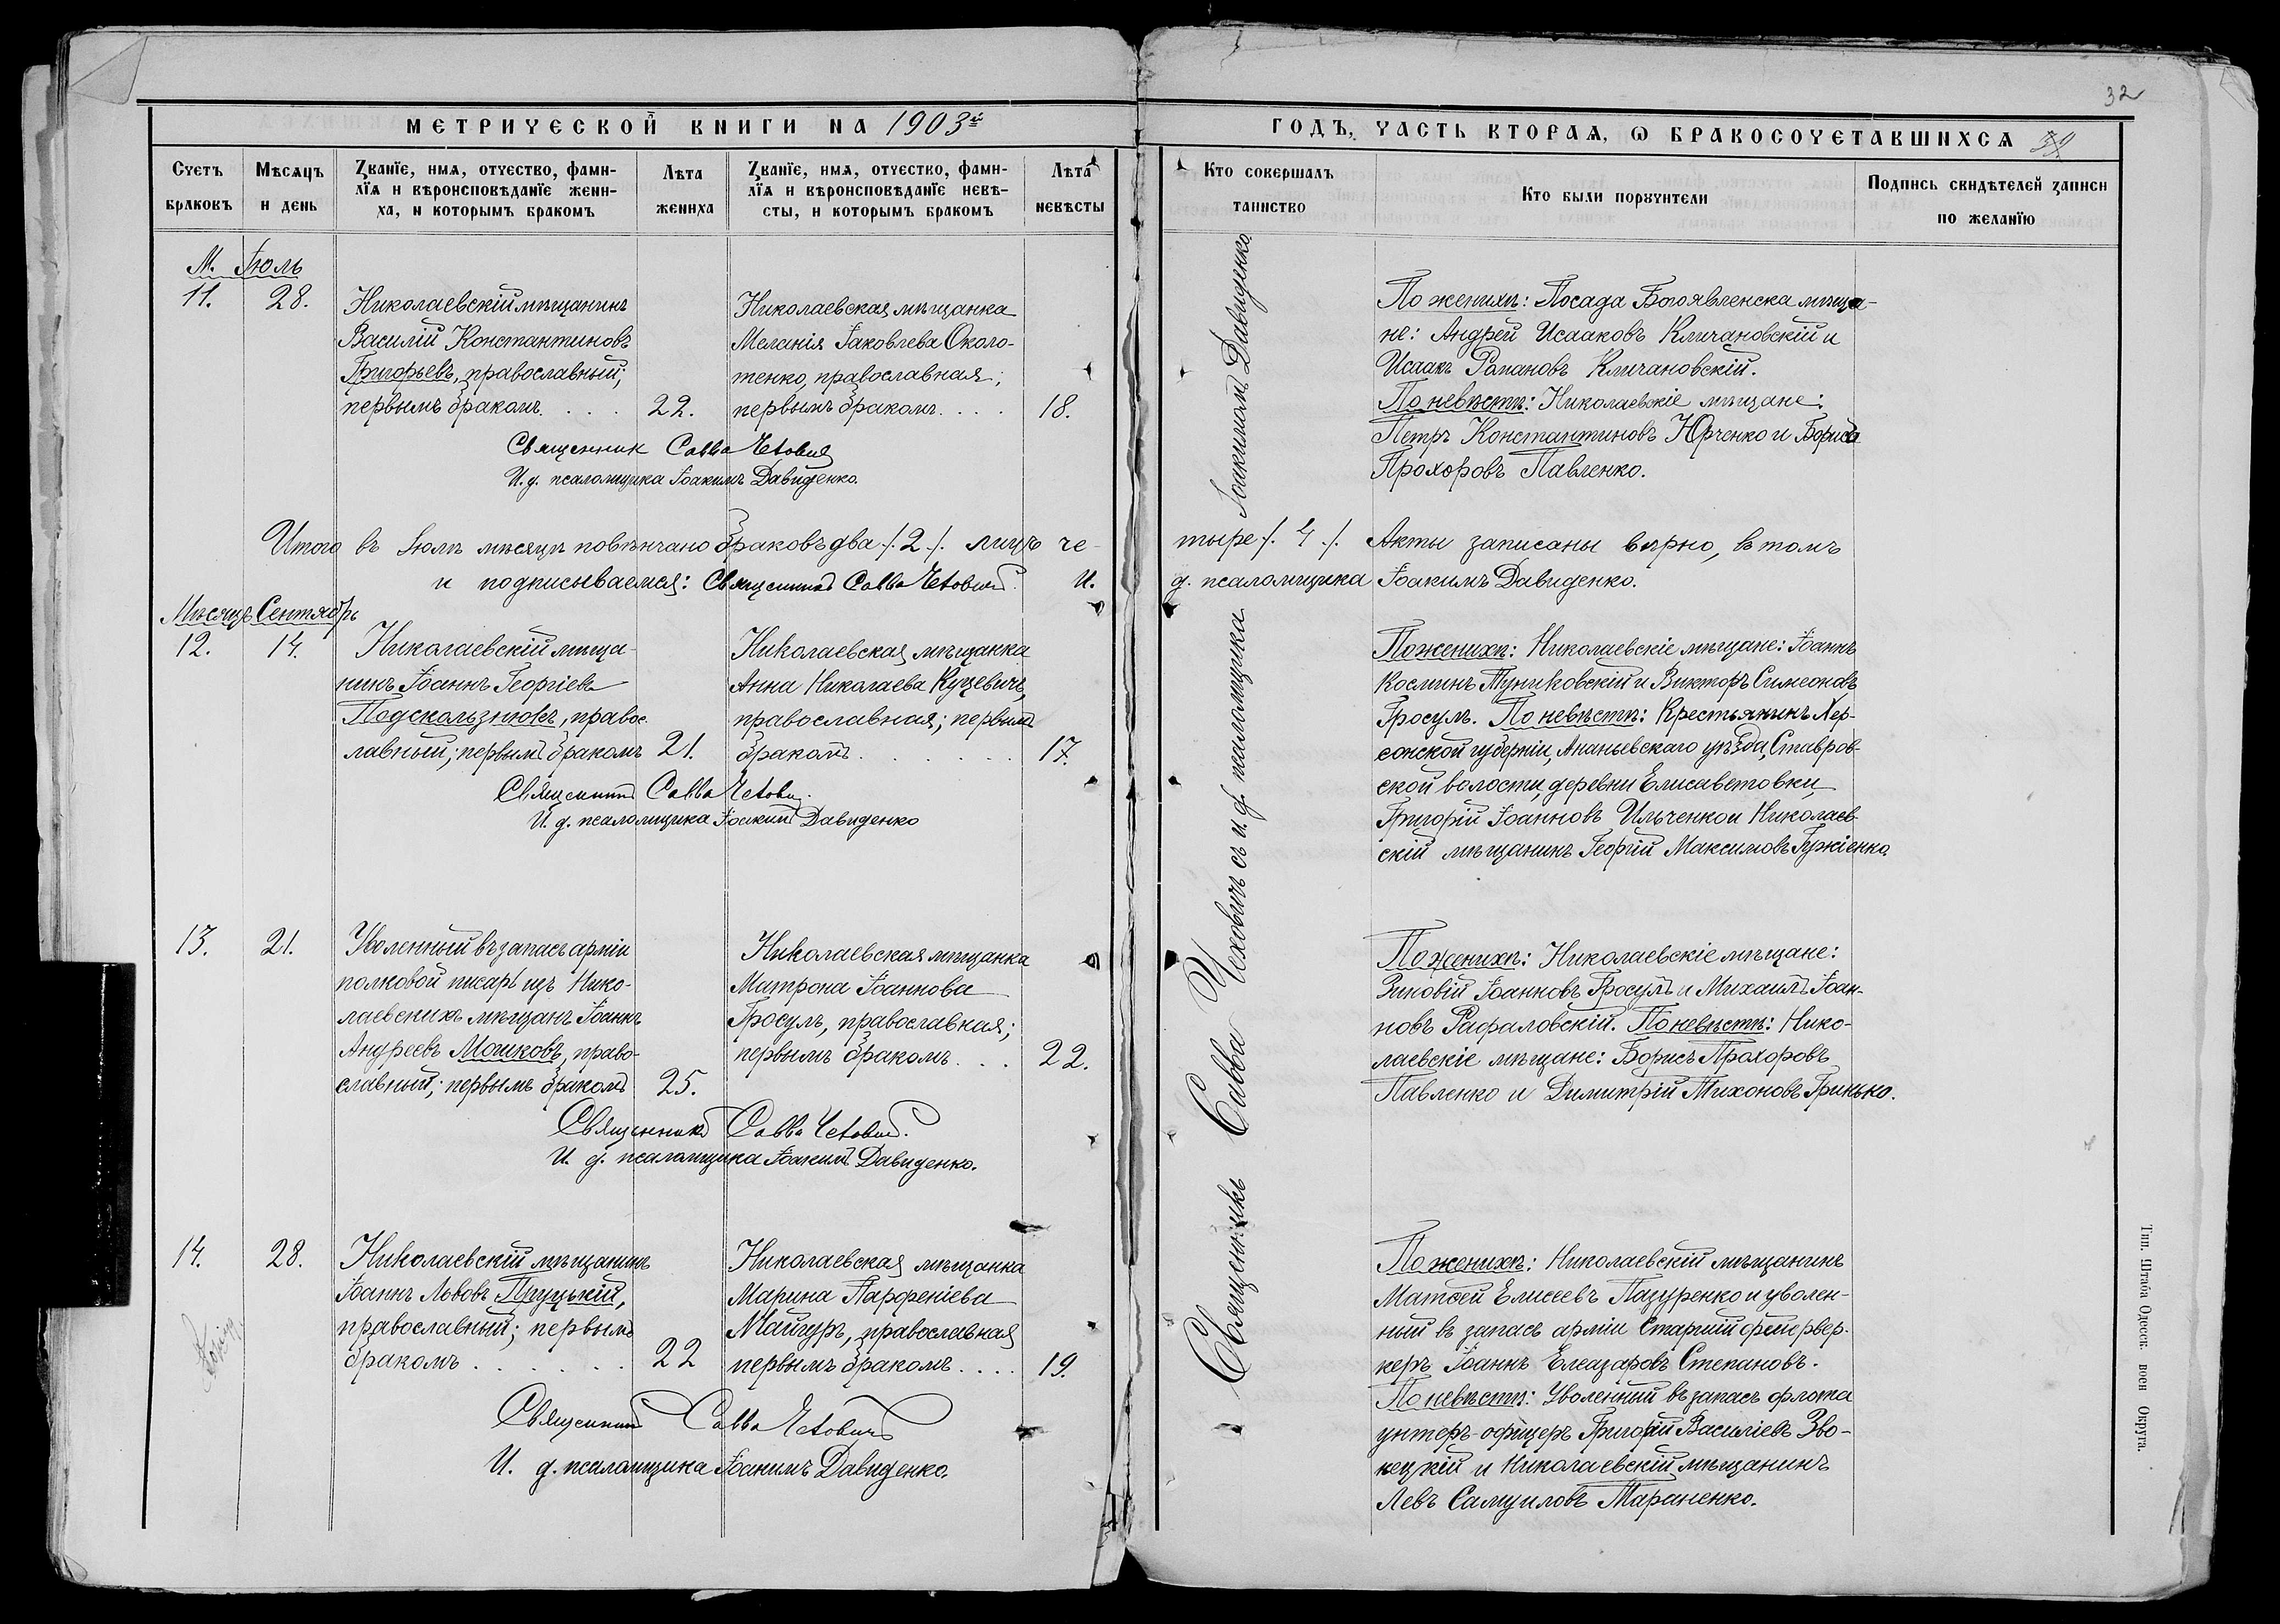 32
МЕТРИЧЕСКОЙ КНИГИ НА 1903й
ГОДЪ, ЧАСТЬ ВТОРАЯ, Ѡ БРАКОСОЧЕТАВШИХСЯ
Счетъ браковъ
Мѣсяцъ и день
Званїе, имя, отчество, фами-
лїя и вѣроисповѣданїе жени-
ха, и которымъ бракомъ
Лѣта жениха
Званїе, имя, отчество, фами-
лїя и вѣроисповѣданїе невѣ-
сты, и которымъ бракомъ
Лѣта невѣсты
Кто совершалъ таинство
Кто были порꙋчители
Подпись свидѣтелей записи
по желанїю
М. Іюль
11.
28.
Николаевскій мѣщанинъ
Василій Константиновъ
Григорьевъ, православный;
первымъ бракомъ. . . .
22.
Николаевская мѣщанка
Меланія Іаковлева Около-
тенко, православная;
первымъ бракомъ. . . .
18.
Священник Савва Чехович
И. д. псаломщика Іоакимъ Давиденко.
По женихѣ: Посада Богоявленска мѣща-
не: Андрей Исааковъ Кличановскій и
Исаакъ Романовъ Кличановскій.
По невѣстѣ: Николаевскіе мѣщане:
Петръ Константиновъ Юрченко и Борисъ
Прохоровъ Павленко.
Итого въ Іюлѣ мѣсяцѣ повѣнчано браковъ два ./. 2 ./. лицъ че-
тыре ./. 4 ./. Акты записаны вѣрно, въ томъ
и подписываемся: Священникъ Савва Чеховичъ. И.
д. псаломщика Іоакимъ Давиденко.
Мѣсяцъ Сентябрь
12.
14.
Николаевскій мѣща-
нинъ Іоаннъ Георгіевъ
Подскользновъ, правос
лавный; первымъ бракомъ
21.
Николаевская мѣщанка
Анна Николаева Куцевичъ,
православная; первымъ
бракомъ. . . . . . .
17.
Священникъ Савва Чехович.
И. д. псаломщика Іоакимъ Давиденко
По женихѣ: Николаевскіе мѣщане: Іоаннъ
Косминъ Туниковскій и Викторъ Симеоновъ
Гросулъ. По невѣстѣ: Крестьянинъ Хер-
сонской губерніи, Ананьевскаго уѣзда, Ставров-
ской волости, деревни Елисаветовки,
Григорій Іоанновъ Ильченко и Николаев-
скій мѣщанинъ Георгій Максимовъ Гужіенко.
13.
21.
Уволенный въ запасъ арміи
полковой писарь изъ Нико-
лаевскихъ мѣщанъ Іоаннъ
Андреевъ Мошковъ, право-
славный; первымъ бракомъ
25.
Николаевская мѣщанка
Матрона Іоаннова
Гросулъ, православная;
первымъ бракомъ. . . .
22.
Священникъ Савва Чеховичъ.
И. д. псаломщика Іоакимъ Давиденко.
По женихѣ: Николаевскіе мѣщане:
Зиновій Іоанновъ Гросулъ и Михаилъ Іоан-
новъ Рафаловскій. По невѣстѣ: Нико-
лаевскіе мѣщане: Борисъ Прохоровъ
Павленко и Димитрій Тихоновъ Гринько.
14.
28.
Николаевскій мѣщанинъ
Іоаннъ Львовъ Пруцькій,
православный; первымъ
бракомъ. . . . . . .
22
Николаевская мѣщанка
Марина Парфеніева
Майгуръ, православная
первымъ бракомъ. . . .
19.
Священникъ Савва Чеховичъ
И. д. псаломщика Іоакимъ Давиденко.
По женихѣ: Николаевскій мѣщанинъ
Матѳей Елисеевъ Пазуренко и уволен-
ный въ запасъ арміи старшій фейервер-
керъ Іоаннъ Елеазаровъ Степановъ.
По невѣстѣ: Уволенный въ запасъ флота
унтеръ-офицеръ Григорій Василіевъ Зво-
нецкій и Николаевскій мѣщанинъ
Левъ Самуиловъ Мараненко.
Священникъ Савва Чеховичъ съ и. д. псаломщика Іоакимомъ Давиденко
Тип. Штаба Одесск. воен Округа.